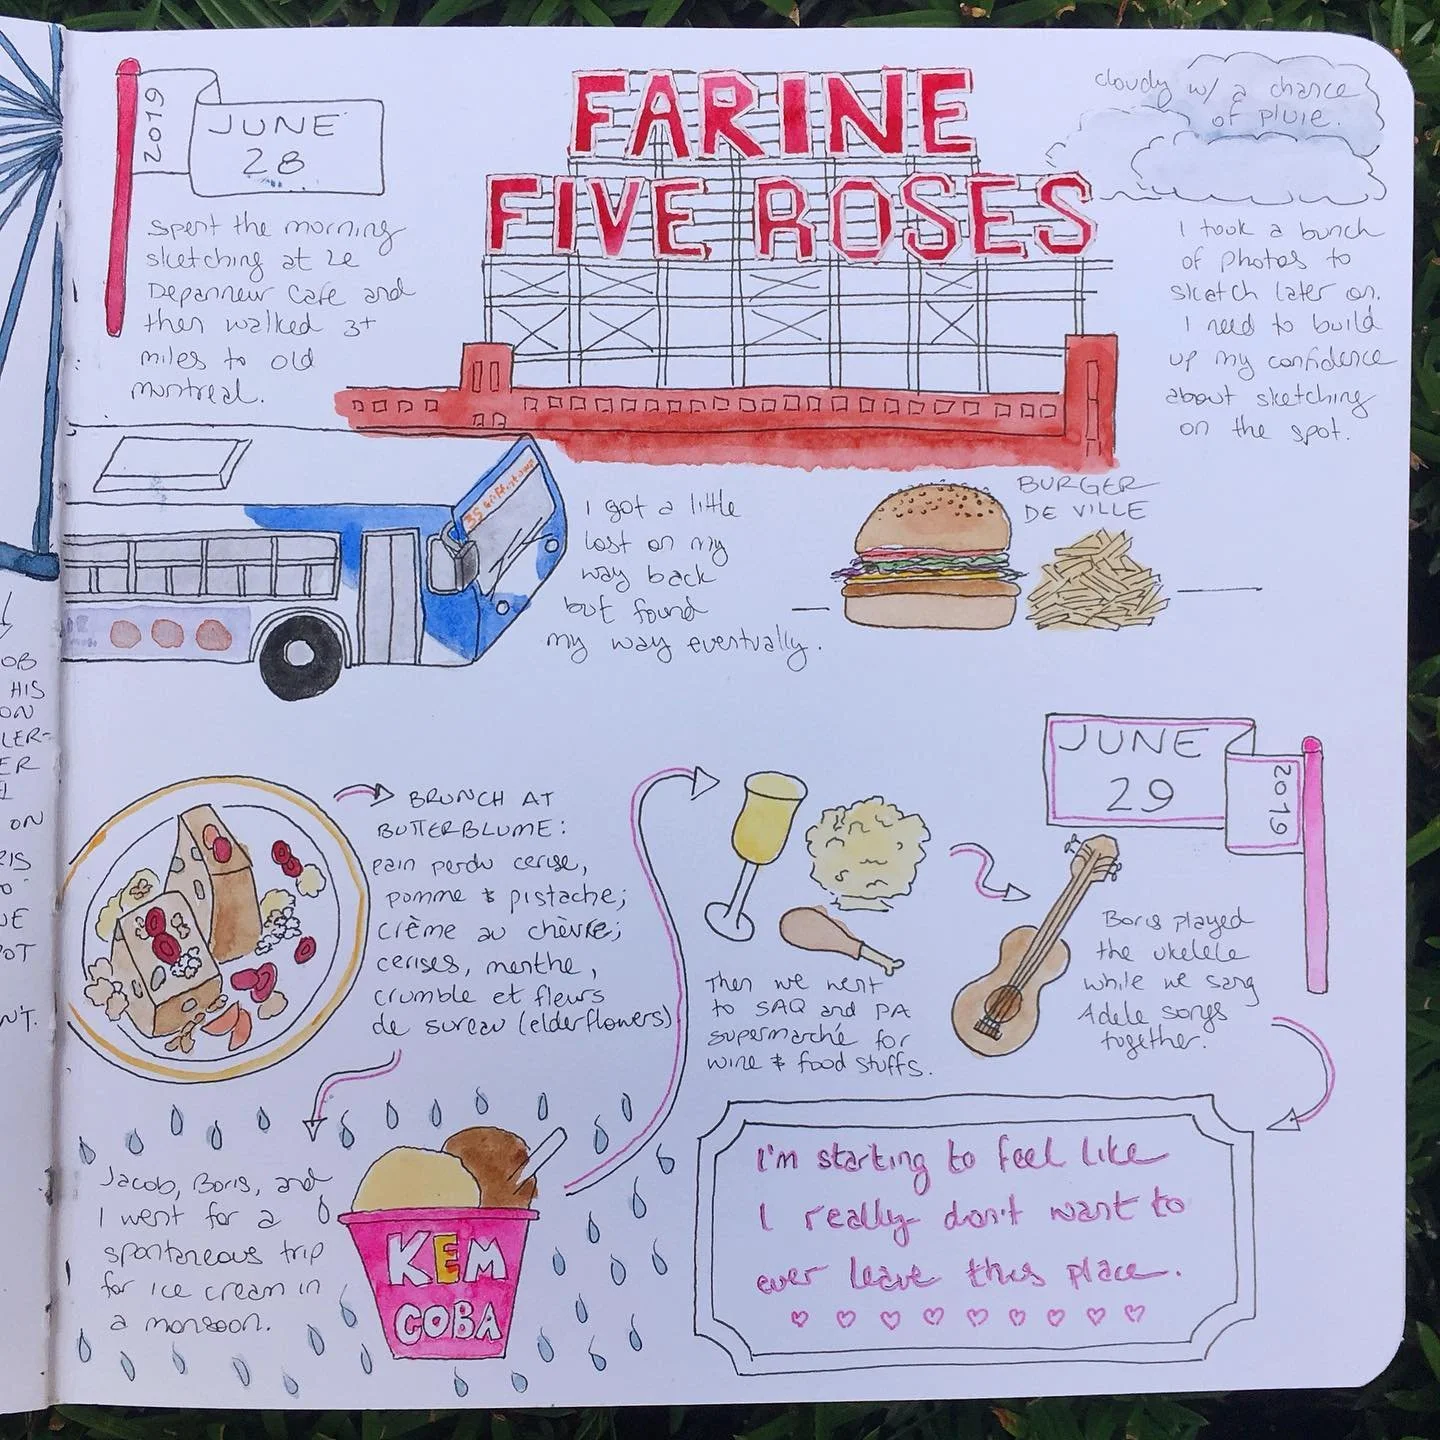 2019
JUNE
28
Spent the morning
sketching at Le
Depanneur Cafe and
then walked 3+
miles to old
montreal.
FARINE
FIVE ROSES
cloudy w/ a chance
of pluie.
I took a bunch
of photos to
sketch later on.
I need to build
up my confidence
about sketching
on the spot.
35 Griffintown
I got a little
lost on my
way back
but found
my way eventually.
BURGER
DE VILLE
JUNE
29
2019
BRUNCH AT
BUTTERBLUME:
pain perdu cerise,
pomme & pistache;
crème au chèvre;
cerises, menthe,
crumble et fleurs
de sureau (elderflowers)
Jacob, Boris, and
I went for a
spontaneous trip
for ice cream in
a monsoon.
KEM
COBA
Then we went
to SAQ and PA
supermarché for
wine & food stuffs.
Boris played
the ukelele
while we sang
Adele songs
together.
I'm starting to feel like
I really don't want to
ever leave this place.
OB
HIS
ON
LER-
ER
ON
RIS
UE
POT
N'T.